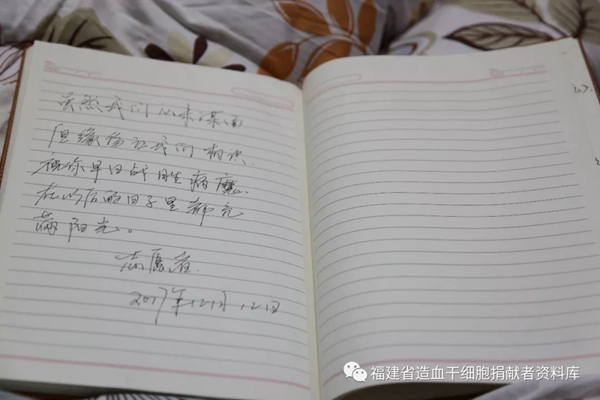 虽然我们从未谋面
但缘份让我们相识.
祝你早日战胜病魔.
在以后的日子里都充
满阳光。
志愿者.
2017年12月12日
福建省造血干细胞捐献者资料库